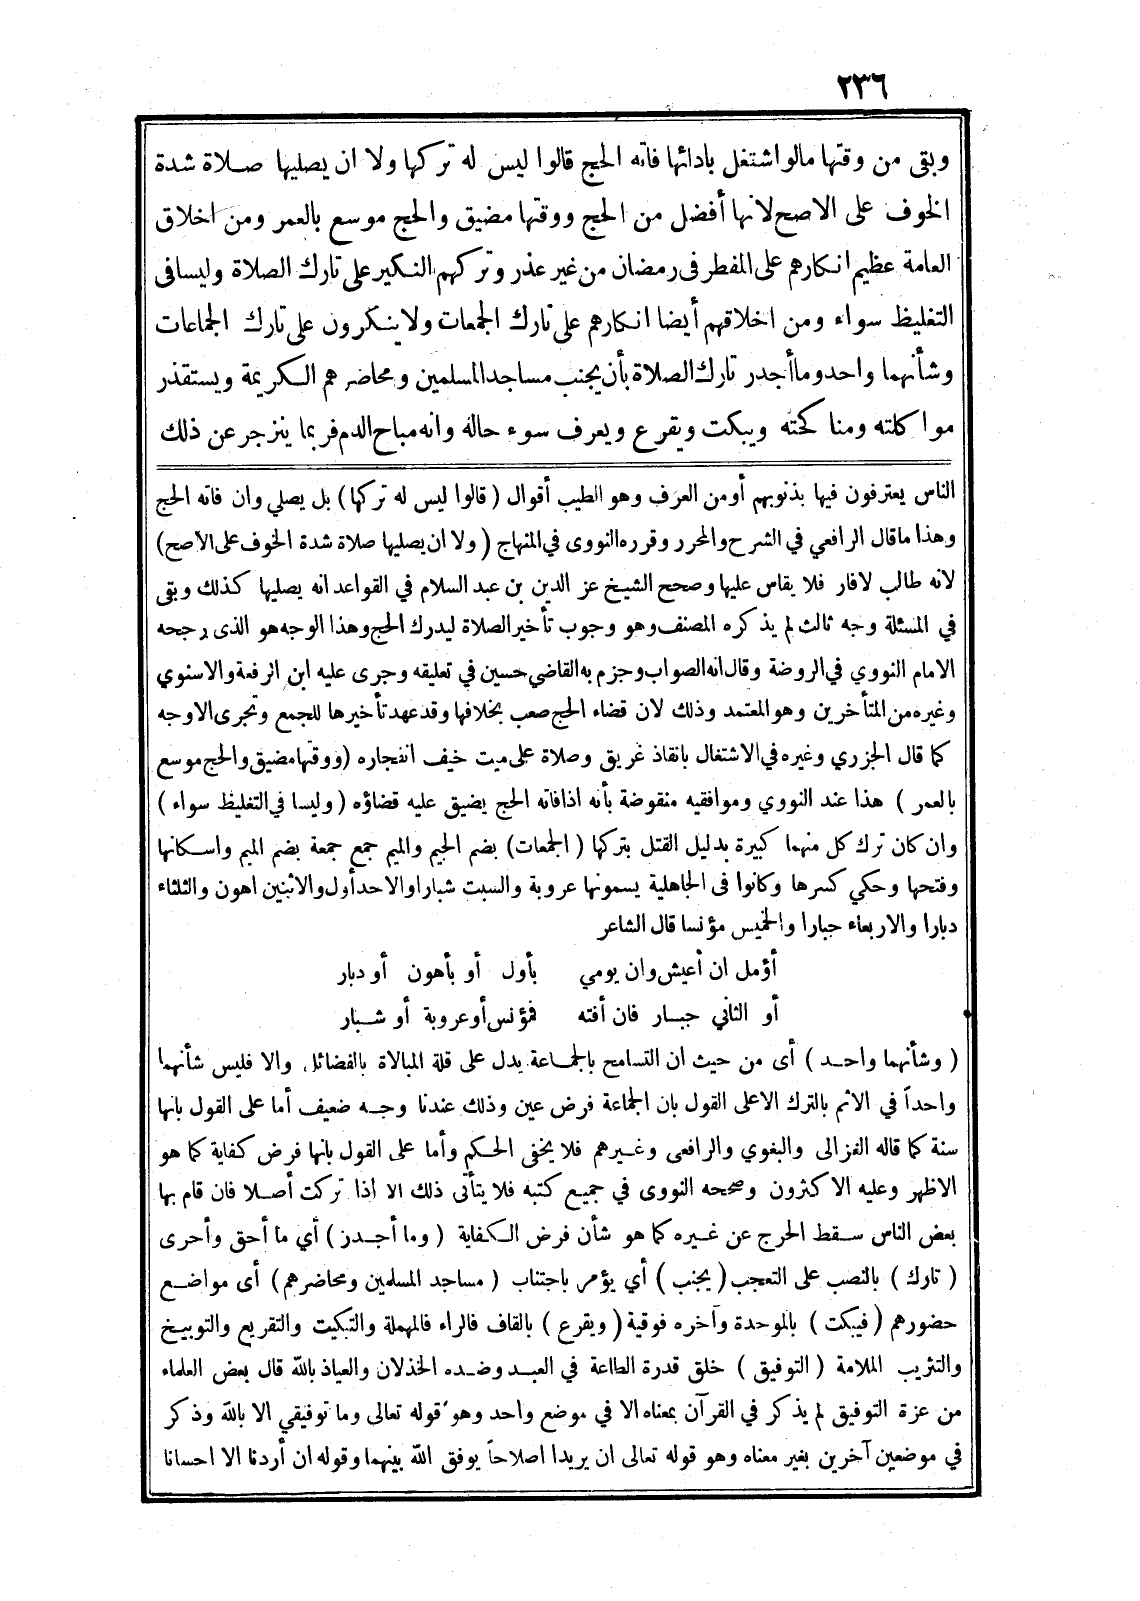 ٢٣٦
وبقى من وقتها مالو اشتغل بادائها فاته الحج قالوا ليس له تركها ولا ان يصليها صلاة شدة
الخوف على الاصح لانها أفضل من الحج ووقتها مضيق والحج موسع بالعمر ومن اخلاق
العامة عظيم انكارهم على المفطر فى رمضان من غير عذر وتركهم النكير على تارك الصلاة وليسا فى
التغليظ سواء ومن اخلاقهم أيضا انكارهم على تارك الجمعات ولا ينكرون على تارك الجماعات
وشأنهما واحد وما أجدر تارك الصلاة بأن يجنب مساجد المسلمين ومحاضرهم الكريمة ويستقذر
مواكلته ومناكحته ويبكت ويقرع ويعرف سوء حاله وانه مباح الدم فربما ينزجر عن ذلك
الناس يعترفون فيها بذنوبهم أو من العرف وهو الطيب أقوال ( قالوا ليس له تركها ) بل يصلي وان فاته الحج
وهذا ماقال الرافعي في الشرح والمحرر وقرره النووى في المنهاج ( ولا ان يصليها صلاة شدة الخوف على الاصح )
لانه طالب لافار فلا يقاس عليها وصحح الشيخ عز الدين بن عبد السلام في القواعد انه يصليها كذلك وبقى
في المسئلة وجه ثالث لم يذكره المصنف وهو وجوب تأخير الصلاة ليدرك الحج وهذا الوجه هو الذى رجحه
الامام النووي في الروضة وقال انه الصواب وجزم به القاضي حسين في تعليقه وجرى عليه ابن الرفعة والاسنوي
وغيره من المتأخرين وهو المعتمد وذلك لان قضاء الحج صعب بخلافها وقد عهد تأخيرها للجمع وتجرى الاوجه
كما قال الجزري وغيره في الاشتغال بانقاذ غريق وصلاة على ميت خيف انفجاره ( ووقتها مضيق والحج موسع
بالعمر ) هذا عند النووي وموافقيه منقوضة بأنه اذا فاته الحج يضيق عليه قضاؤه ( وليسا في التغليظ سواء )
وان كان ترك كل منهما كبيرة بدليل القتل بتركها ( الجمعات ) بضم الجيم والميم جمع جمعة بضم الميم واسكانها
وفتحها وحكي كسرها وكانوا فى الجاهلية يسمونها عروبة والسبت شبارا والاحد أول والاثنين اهون والثلثاء
دبارا والاربعاء جبارا والخميس مؤنسا قال الشاعر
أؤمل ان أعيش وان يومي بأول أو بأهون أو دبار
أو الثاني جبار فان أفته فمؤنس أو عروبة أو شبار
( وشأنهما واحد ) أى من حيث ان التسامح بالجماعة يدل على قلة المبالاة بالفضائل والا فليس شأنهما
واحداً في الاثم بالترك الا على القول بان الجماعة فرض عين وذلك عندنا وجه ضعيف أما على القول بانها
سنة كما قاله الغزالى والبغوي والرافعى وغيرهم فلا يخفى الحكم وأما على القول بانها فرض كفاية كما هو
الاظهر وعليه الاكثرون وصححه النووى في جميع كتبه فلا يتأتى ذلك الا اذا تركت أصلا فان قام بها
بعض الناس سقط الحرج عن غيره كما هو شأن فرض الكفاية ( وما أجدر ) أي ما أحق وأحرى
( تارك ) بالنصب على التعجب ( يجنب ) أي يؤمر باجتناب ( مساجد المسلمين ومحاضرهم ) أى مواضع
حضورهم ( فيبكت ) بالموحدة وآخره فوقية ( ويقرع ) بالقاف فالراء فالمهملة والتبكيت والتقريع والتوبيخ
والتثريب الملامة ( التوفيق ) خلق قدرة الطاعة في العبد وضده الخذلان والعياذ بالله قال بعض العلماء
من عزة التوفيق لم يذكر في القرآن بمعناه الا في موضع واحد وهو قوله تعالى وما توفيقي الا بالله وذكر
في موضعين آخرين بغير معناه وهو قوله تعالى ان يريدا اصلاحاً يوفق الله بينهما وقوله ان أردنا الا احسانا